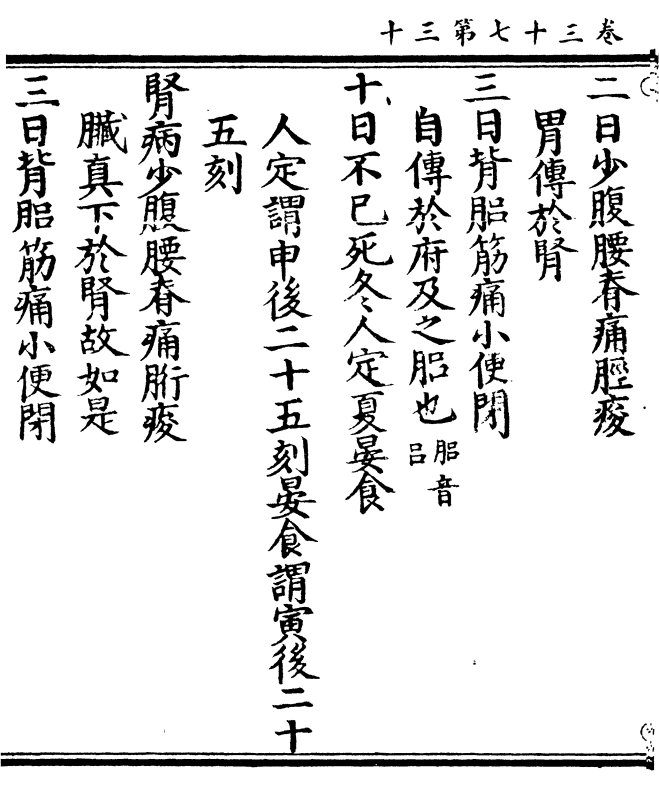 卷三十七第三十
二日少腹腰脊痛脛痠
胃傳於腎
三日背䏰筋痛小便閉
自傳於府及之䏰也䏰音吕
十日不已死冬人定夏晏食
人定謂申後二十五刻晏食謂寅後二十
五刻
腎病少腹腰脊痛胻痠
臟真下於腎故如是
三日背䏰筋痛小便閉